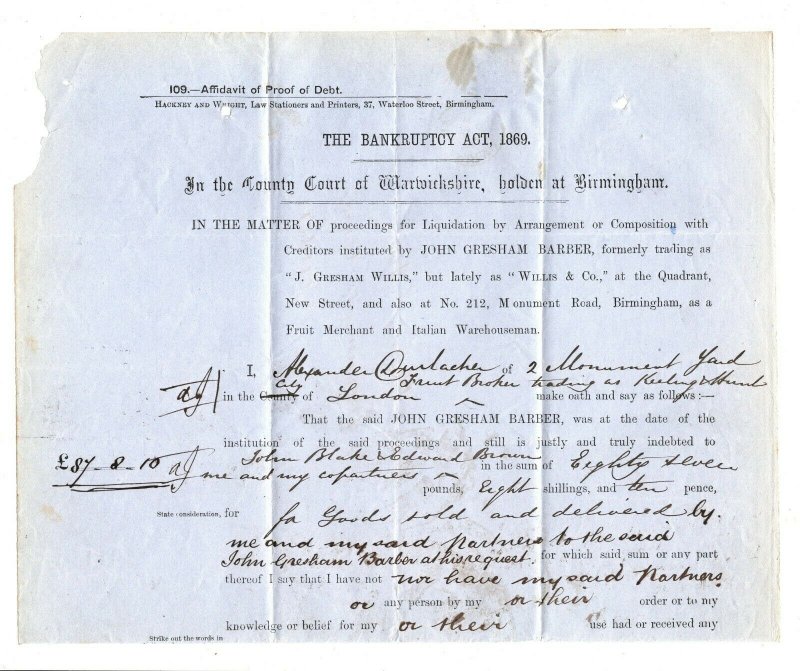 109.—Affidavit of Proof of Debt.
HACKNEY AND WRIGHT, Law Stationers and Printers, 37, Waterloo Street, Birmingham.
THE BANKRUPTCY ACT, 1869.
In the County Court of Warwickshire, holden at Birmingham.
IN THE MATTER OF proceedings for Liquidation by Arrangement or Composition with
Creditors instituted by JOHN GRESHAM BARBER, formerly trading as
"J. GRESHAM WILLIS," but lately as "WILLIS & CO.," at the Quadrant,
New Street, and also at No. 212, Monument Road, Birmingham, as a
Fruit Merchant and Italian Warehouseman.
I, Alexander of 2 Monument Yard
City Fruit Broker trading as Keeling & Hunt
in the County of London make oath and say as follows:—
That the said JOHN GRESHAM BARBER, was at the date of the
institution of the said proceedings and still is justly and truly indebted to
John Blake & Edward Brown
£87-8-10 me and my copartners in the sum of Eighty seven
pounds, Eight shillings, and ten pence,
State consideration, for for Goods sold and delivered by
me and my said partners to the said
John Gresham Barber at his request. for which said sum or any part
thereof I say that I have not nor have my said Partners
or any person by my or their order or to my
knowledge or belief for my or their use had or received any
Strike out the words in